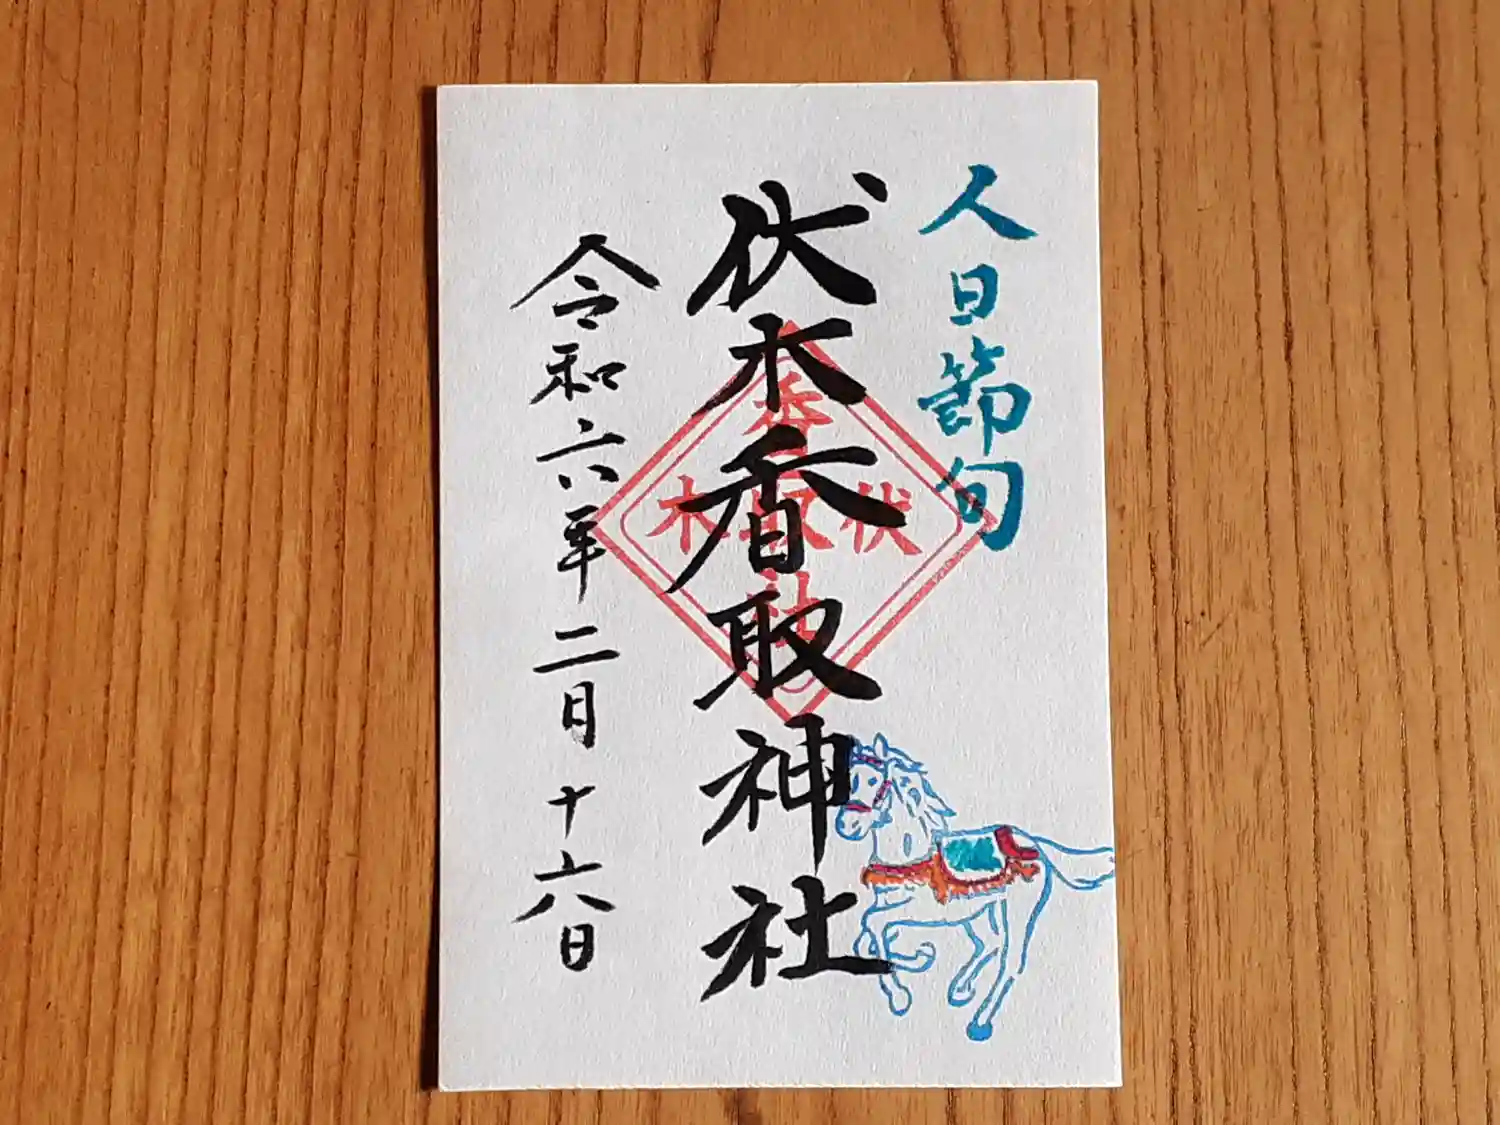 人日節句
伏木香取神社
令和六年二月十六日
香
伏取木
社